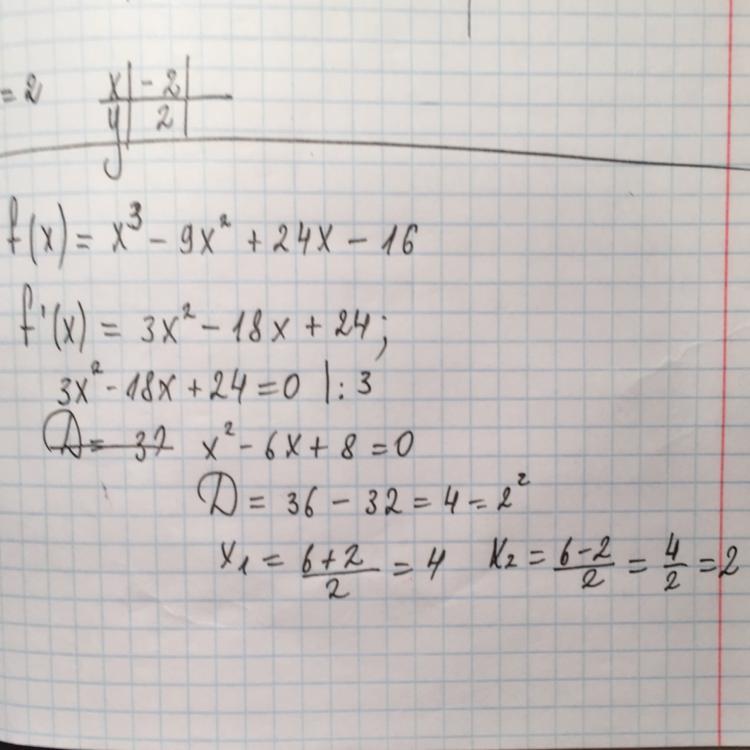 = 2 x | - 2 |
y | 2 |
f(x) = x³ - 9x² + 24x - 16
f'(x) = 3x² - 18x + 24;
3x² - 18x + 24 = 0 |: 3
D = 32 x² - 6x + 8 = 0
D = 36 - 32 = 4 = 2²
x₁ = (6+2)/2 = 4 x₂ = (6-2)/2 = 4/2 = 2